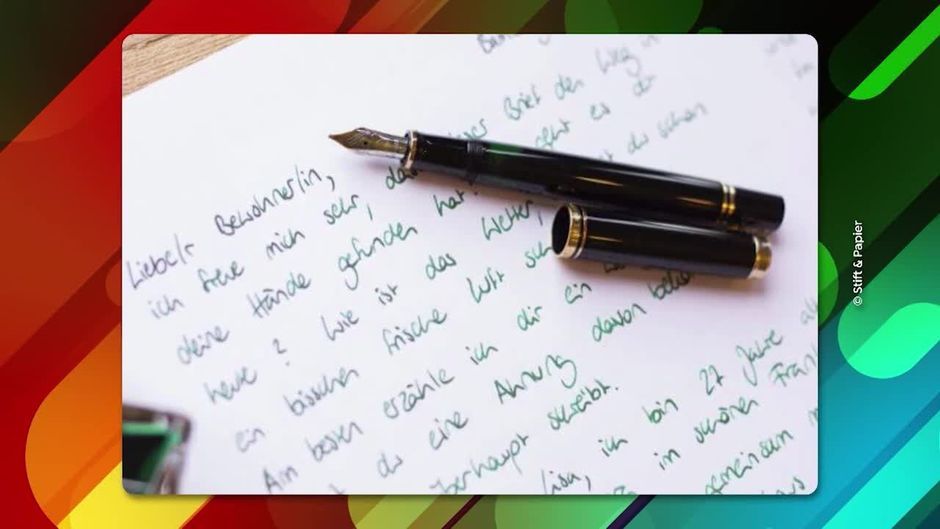 Liebe/r Bewohner/in,
ich freue mich sehr, Brief den Weg in
deine Hände gefunden hat. geht es dir
heute? Wie ist das Wetter, du schon
ein bisschen frische Luft
Am besten erzähle ich dir ein
du eine Ahnung davon
überhaupt schreibt.
Lisa, ich bin 27 Jahre
im schönen
gemeinsam
© Stift & Papier